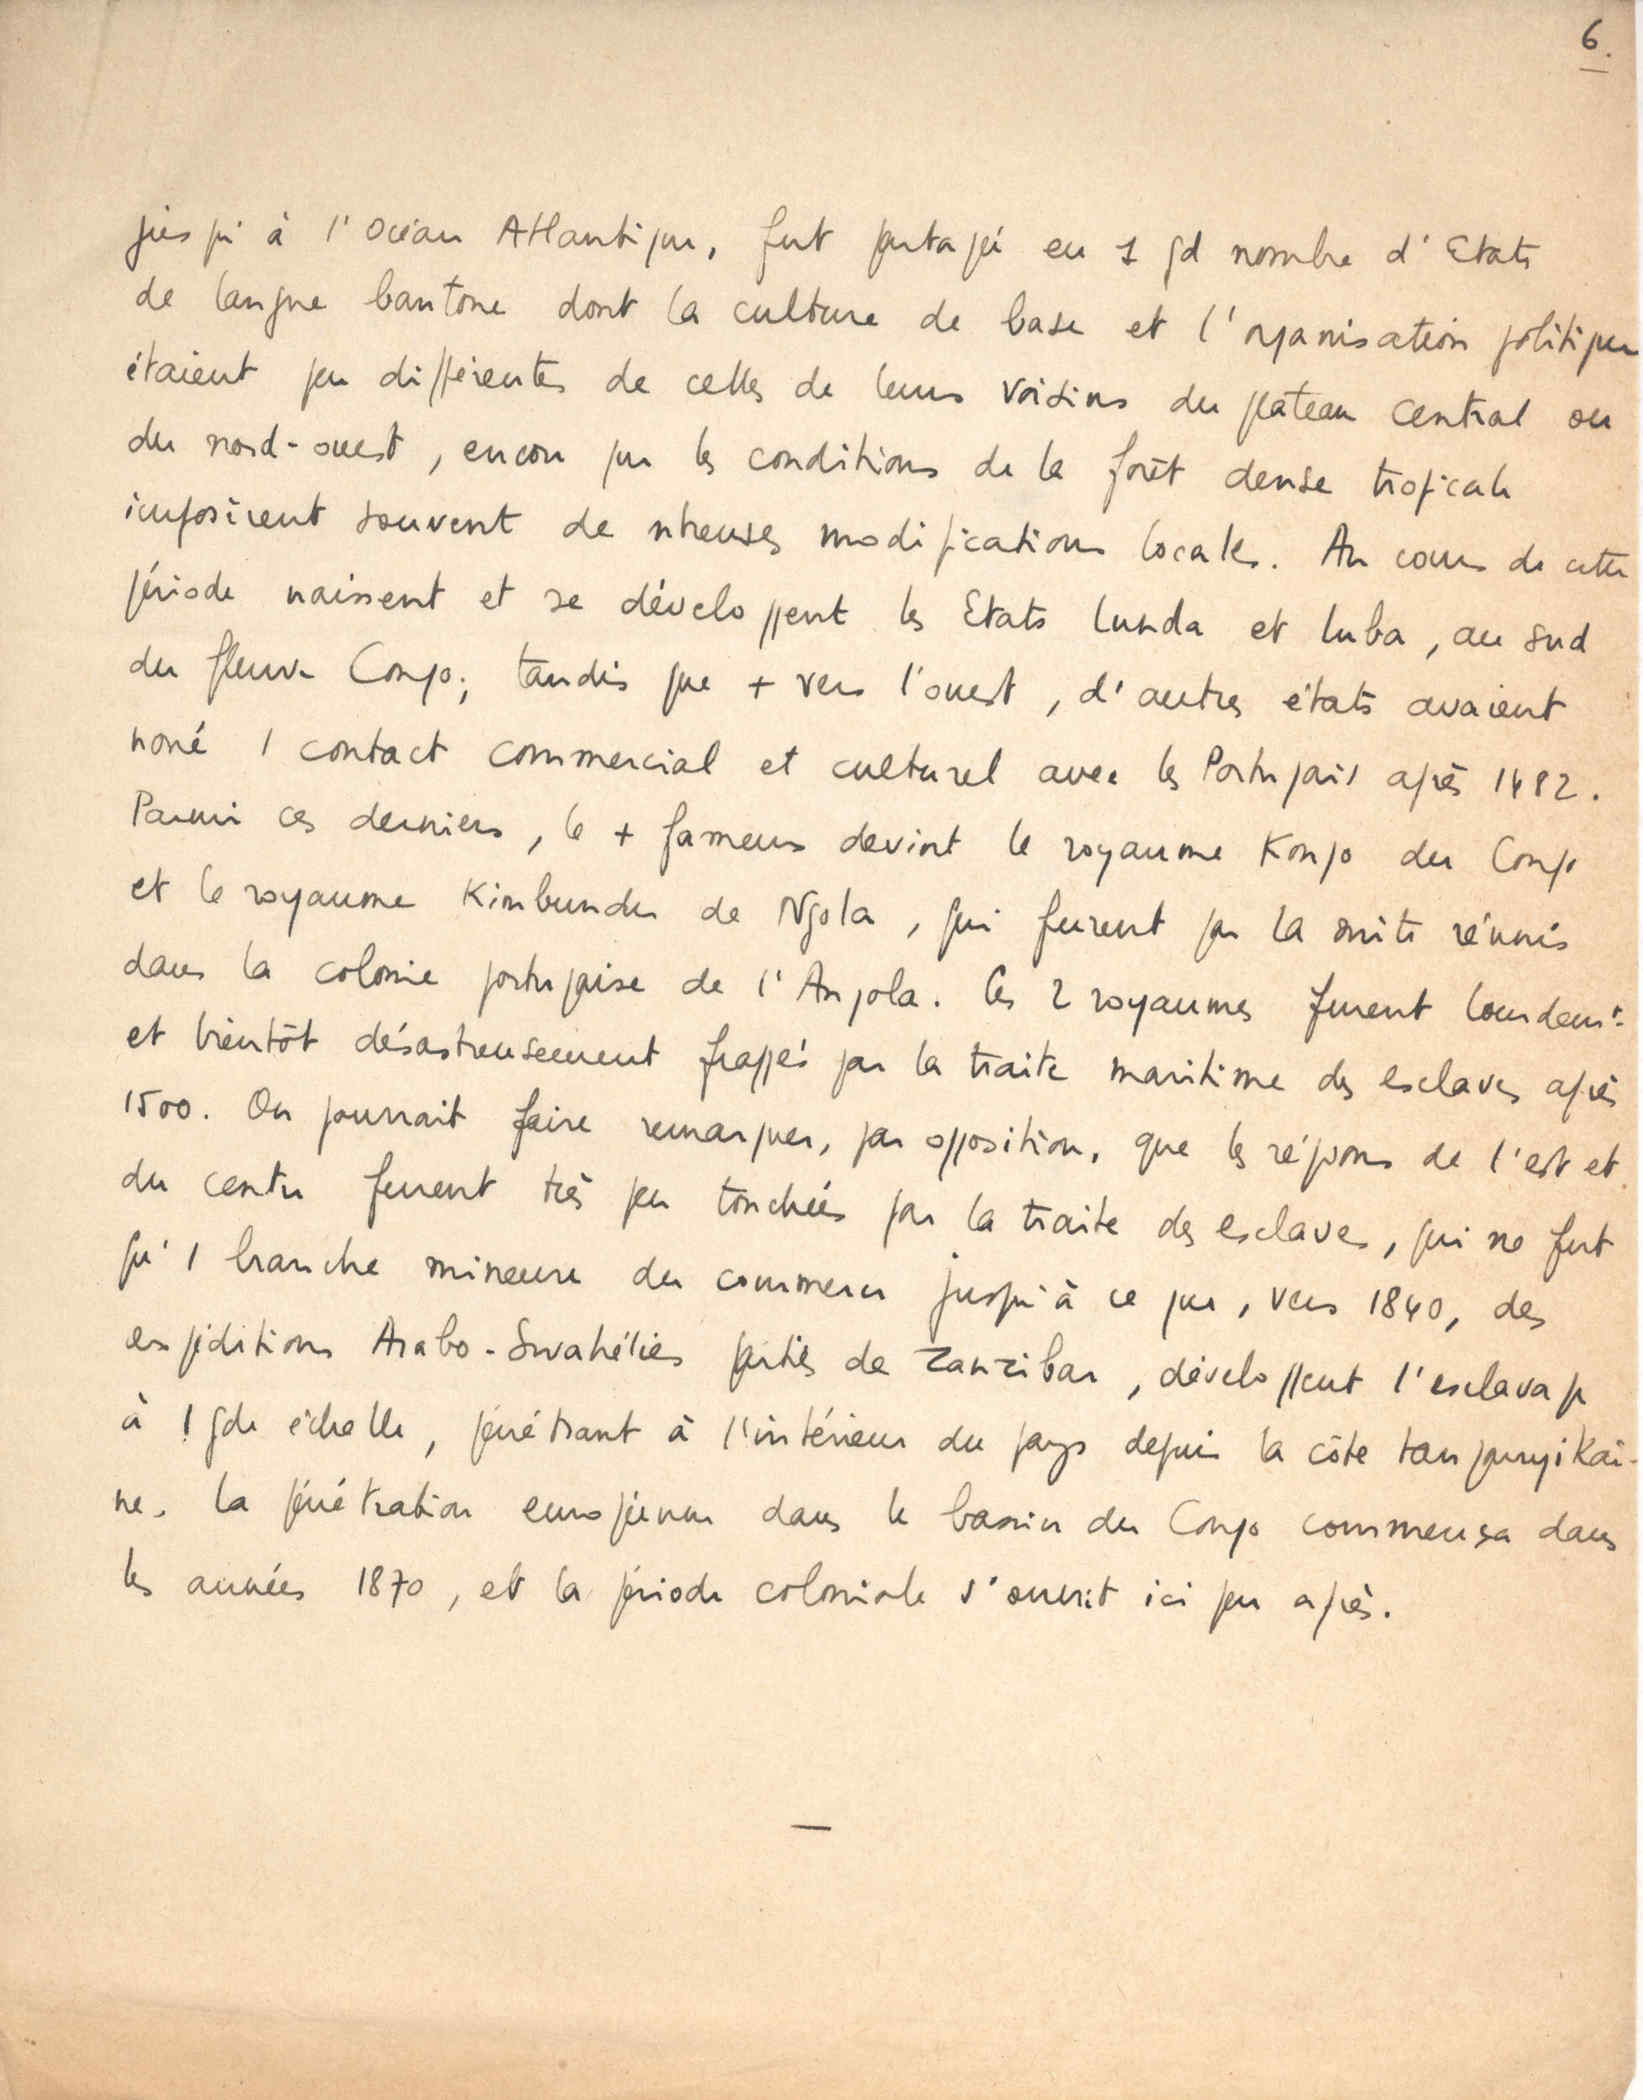 6.
jusqu'à l'Océan Atlantique, fut partagé en 1 gd nombre d'Etats
de langue bantoue dont la culture de base et l'organisation politique
étaient peu différentes de celles de leurs voisins du plateau central ou
du nord-ouest, encore que les conditions de la forêt dense tropicale
imposèrent souvent de nbeuses modifications locales. Au cours de cette
période naissent et se développent les Etats lunda et luba, au sud
du fleuve Congo; tandis que + vers l'ouest, d'autres états avaient
noué 1 contact commercial et culturel avec les Portugais après 1482.
Parmi ces derniers, le + fameux devint le royaume Kongo du Congo
et le royaume Kimbundu de Ngola, qui furent par la suite réunis
dans la colonie portugaise de l'Angola. Ces 2 royaumes furent lourdemt
et bientôt désastreusement frappés par la traite maritime des esclaves après
1500. On pourrait faire remarquer, par opposition, que les régions de l'est et
du centre furent très peu touchées par la traite des esclaves, qui ne fut
qu'1 branche mineure du commerce jusqu'à ce que, vers 1840, des
expéditions Arabo-Swahélies parties de Zanzibar, développent l'esclavage
à 1 gde échelle, pénétrant à l'intérieur du pays depuis la côte tanganyikai-
ne. La pénétration européenne dans le bassin du Congo commença dans
les années 1870, et la période coloniale s'ouvrit ici peu après.